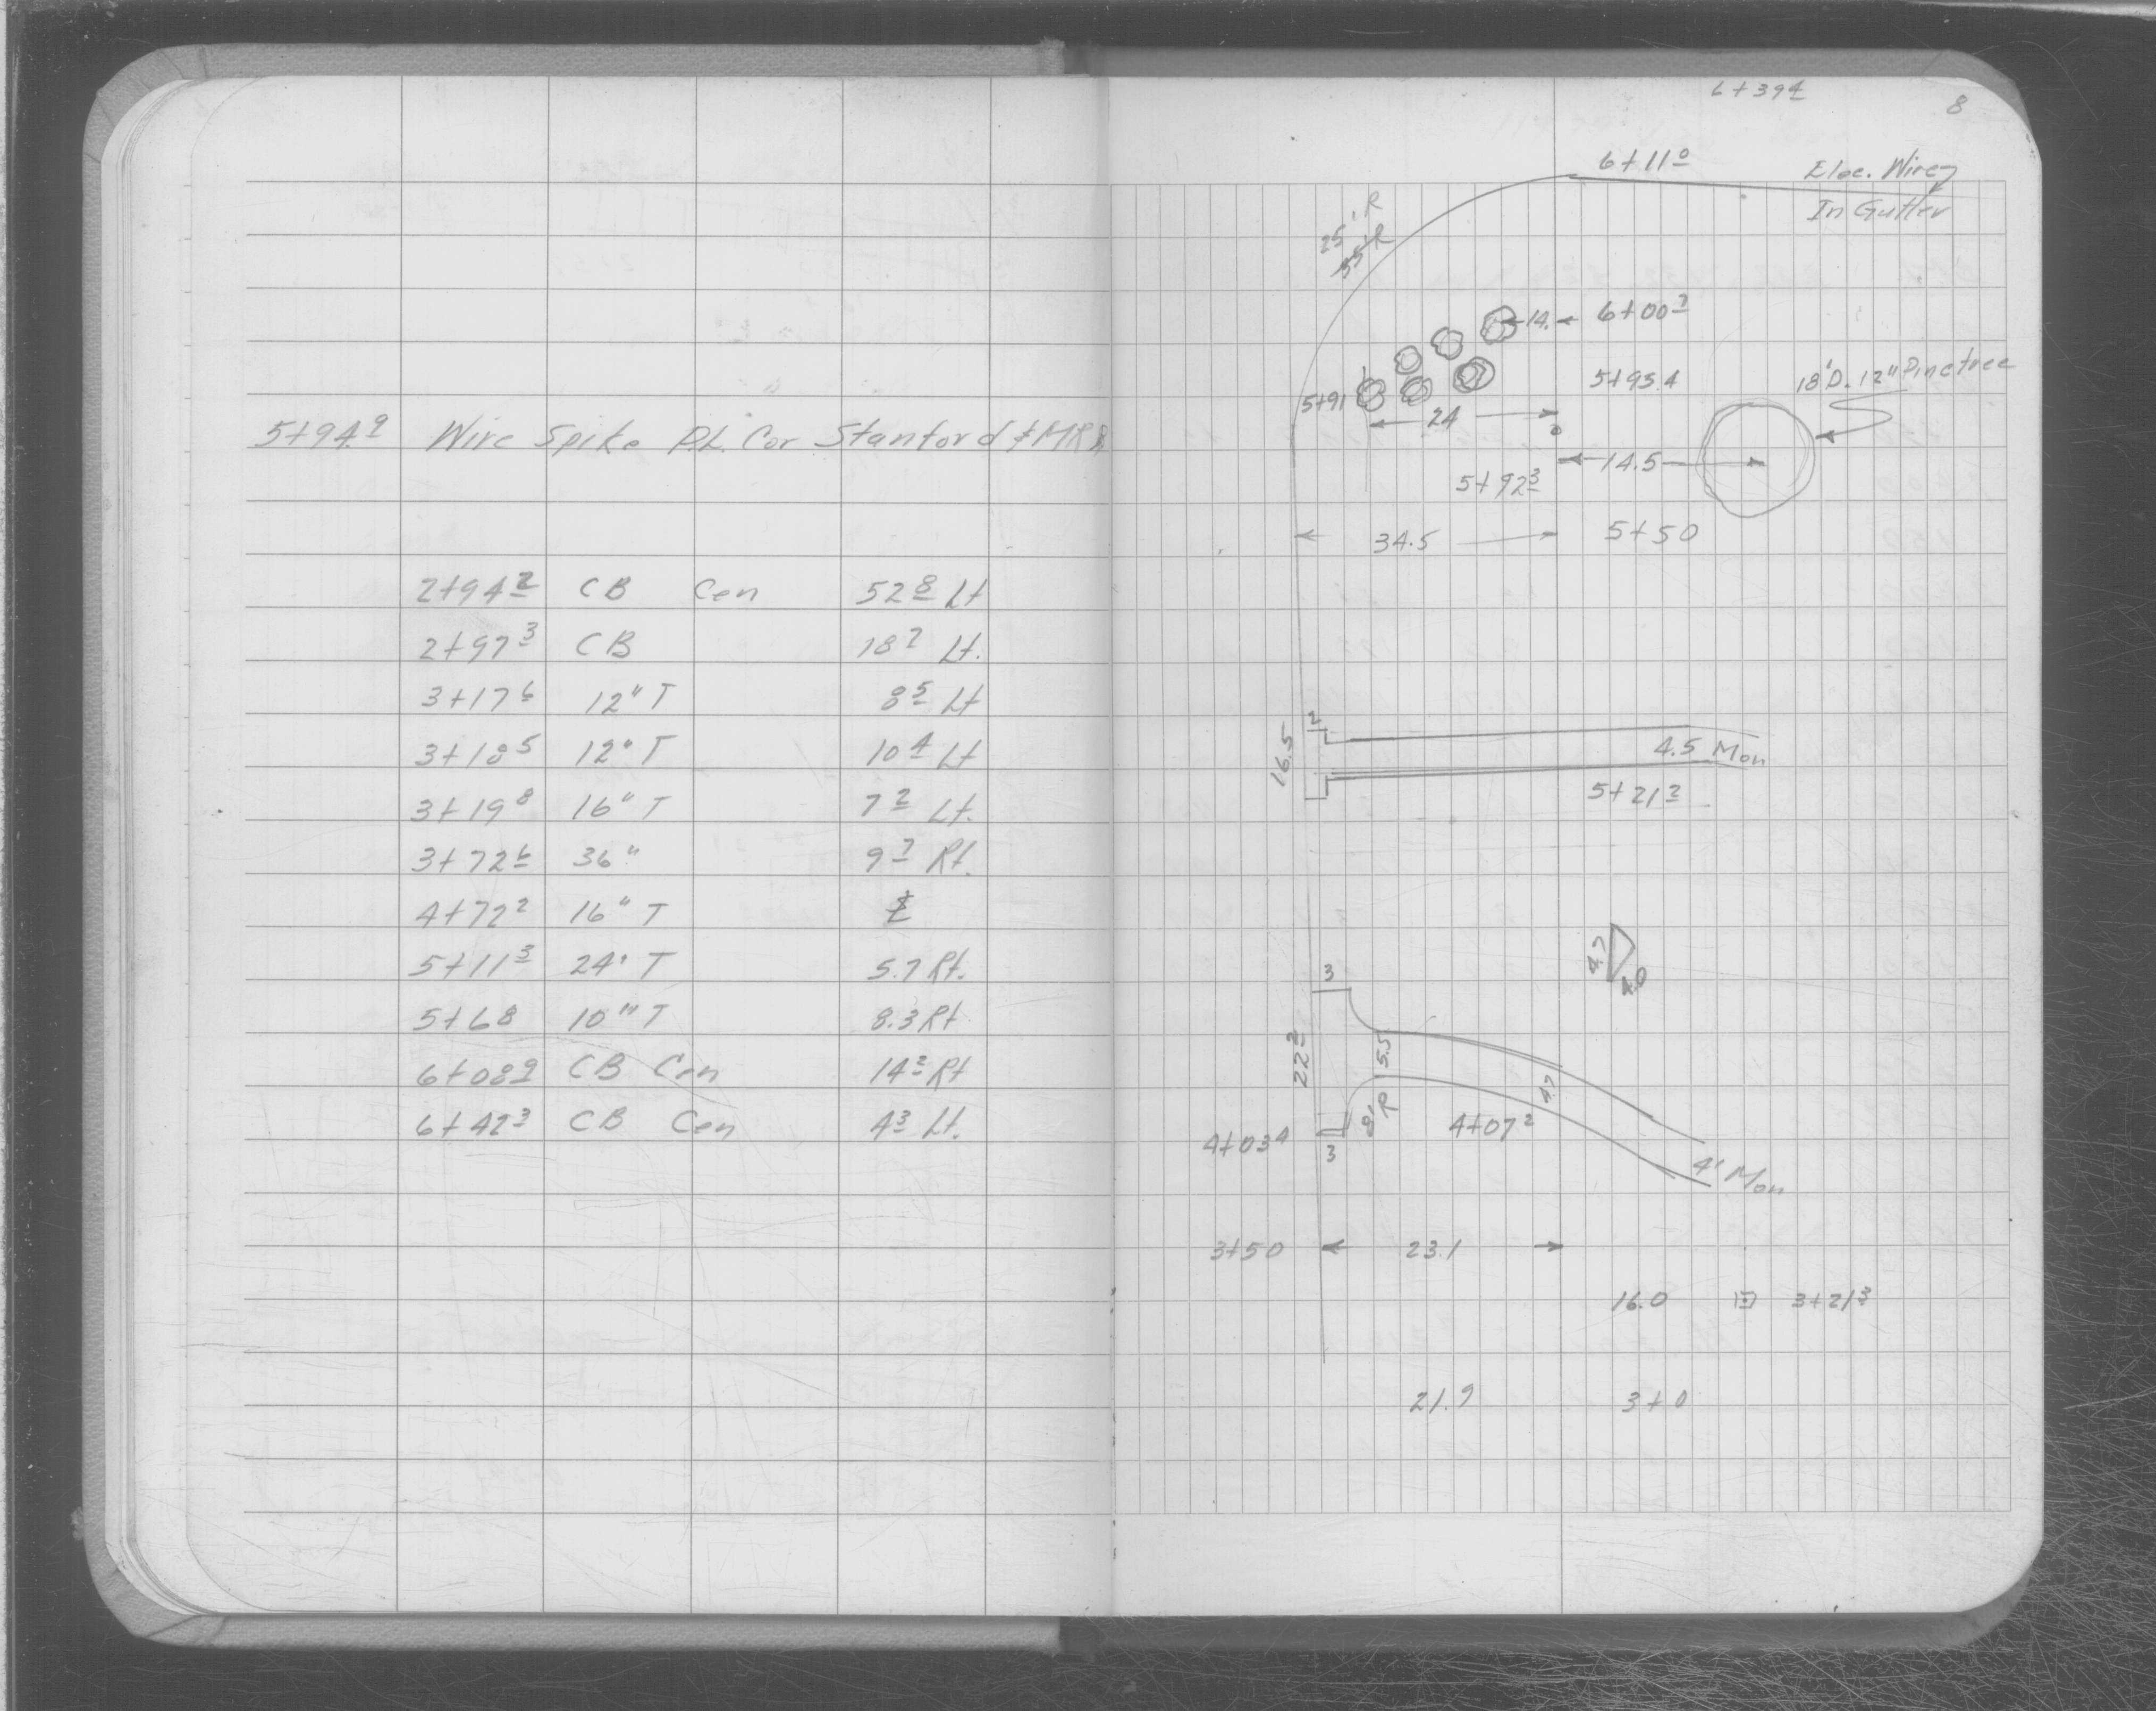 5+94.9 Wire Spike P.L. Cor Stanford & MRR
2+94 2 CB Cen 52 8 Lt
2+97 3 CB 18 7 Lt.
3+17 6 12" T 8 5 Lt
3+18 5 12" T 10 4 Lt
3+19 8 16" T 7 2 Lt.
3+72 6 36" 9 7 Rt.
4+72 2 16" T ℄
5+11 3 24" T 5.7 Rt.
5+68 10" T 8.3 Rt
6+08 9 CB Cen 14 2 Rt
6+42 3 CB Cen 4 3 Lt.
6+39 4
8
6+11 0
Elec. Wire
In Gutter
25' R
55' R
14.
6+00 7
5+95.4
18'D. 12" Pine tree
5+91
24
14.5
5+92 3
34.5
5+50
2
16.5
4.5 Mon
5+21 2
4.7
4.0
3
22 2
5.5
4.7
8' R
4+03 4
3
4+07 2
4' Mon
3+50
23.1
16.0
3+21 3
21.9
3+0